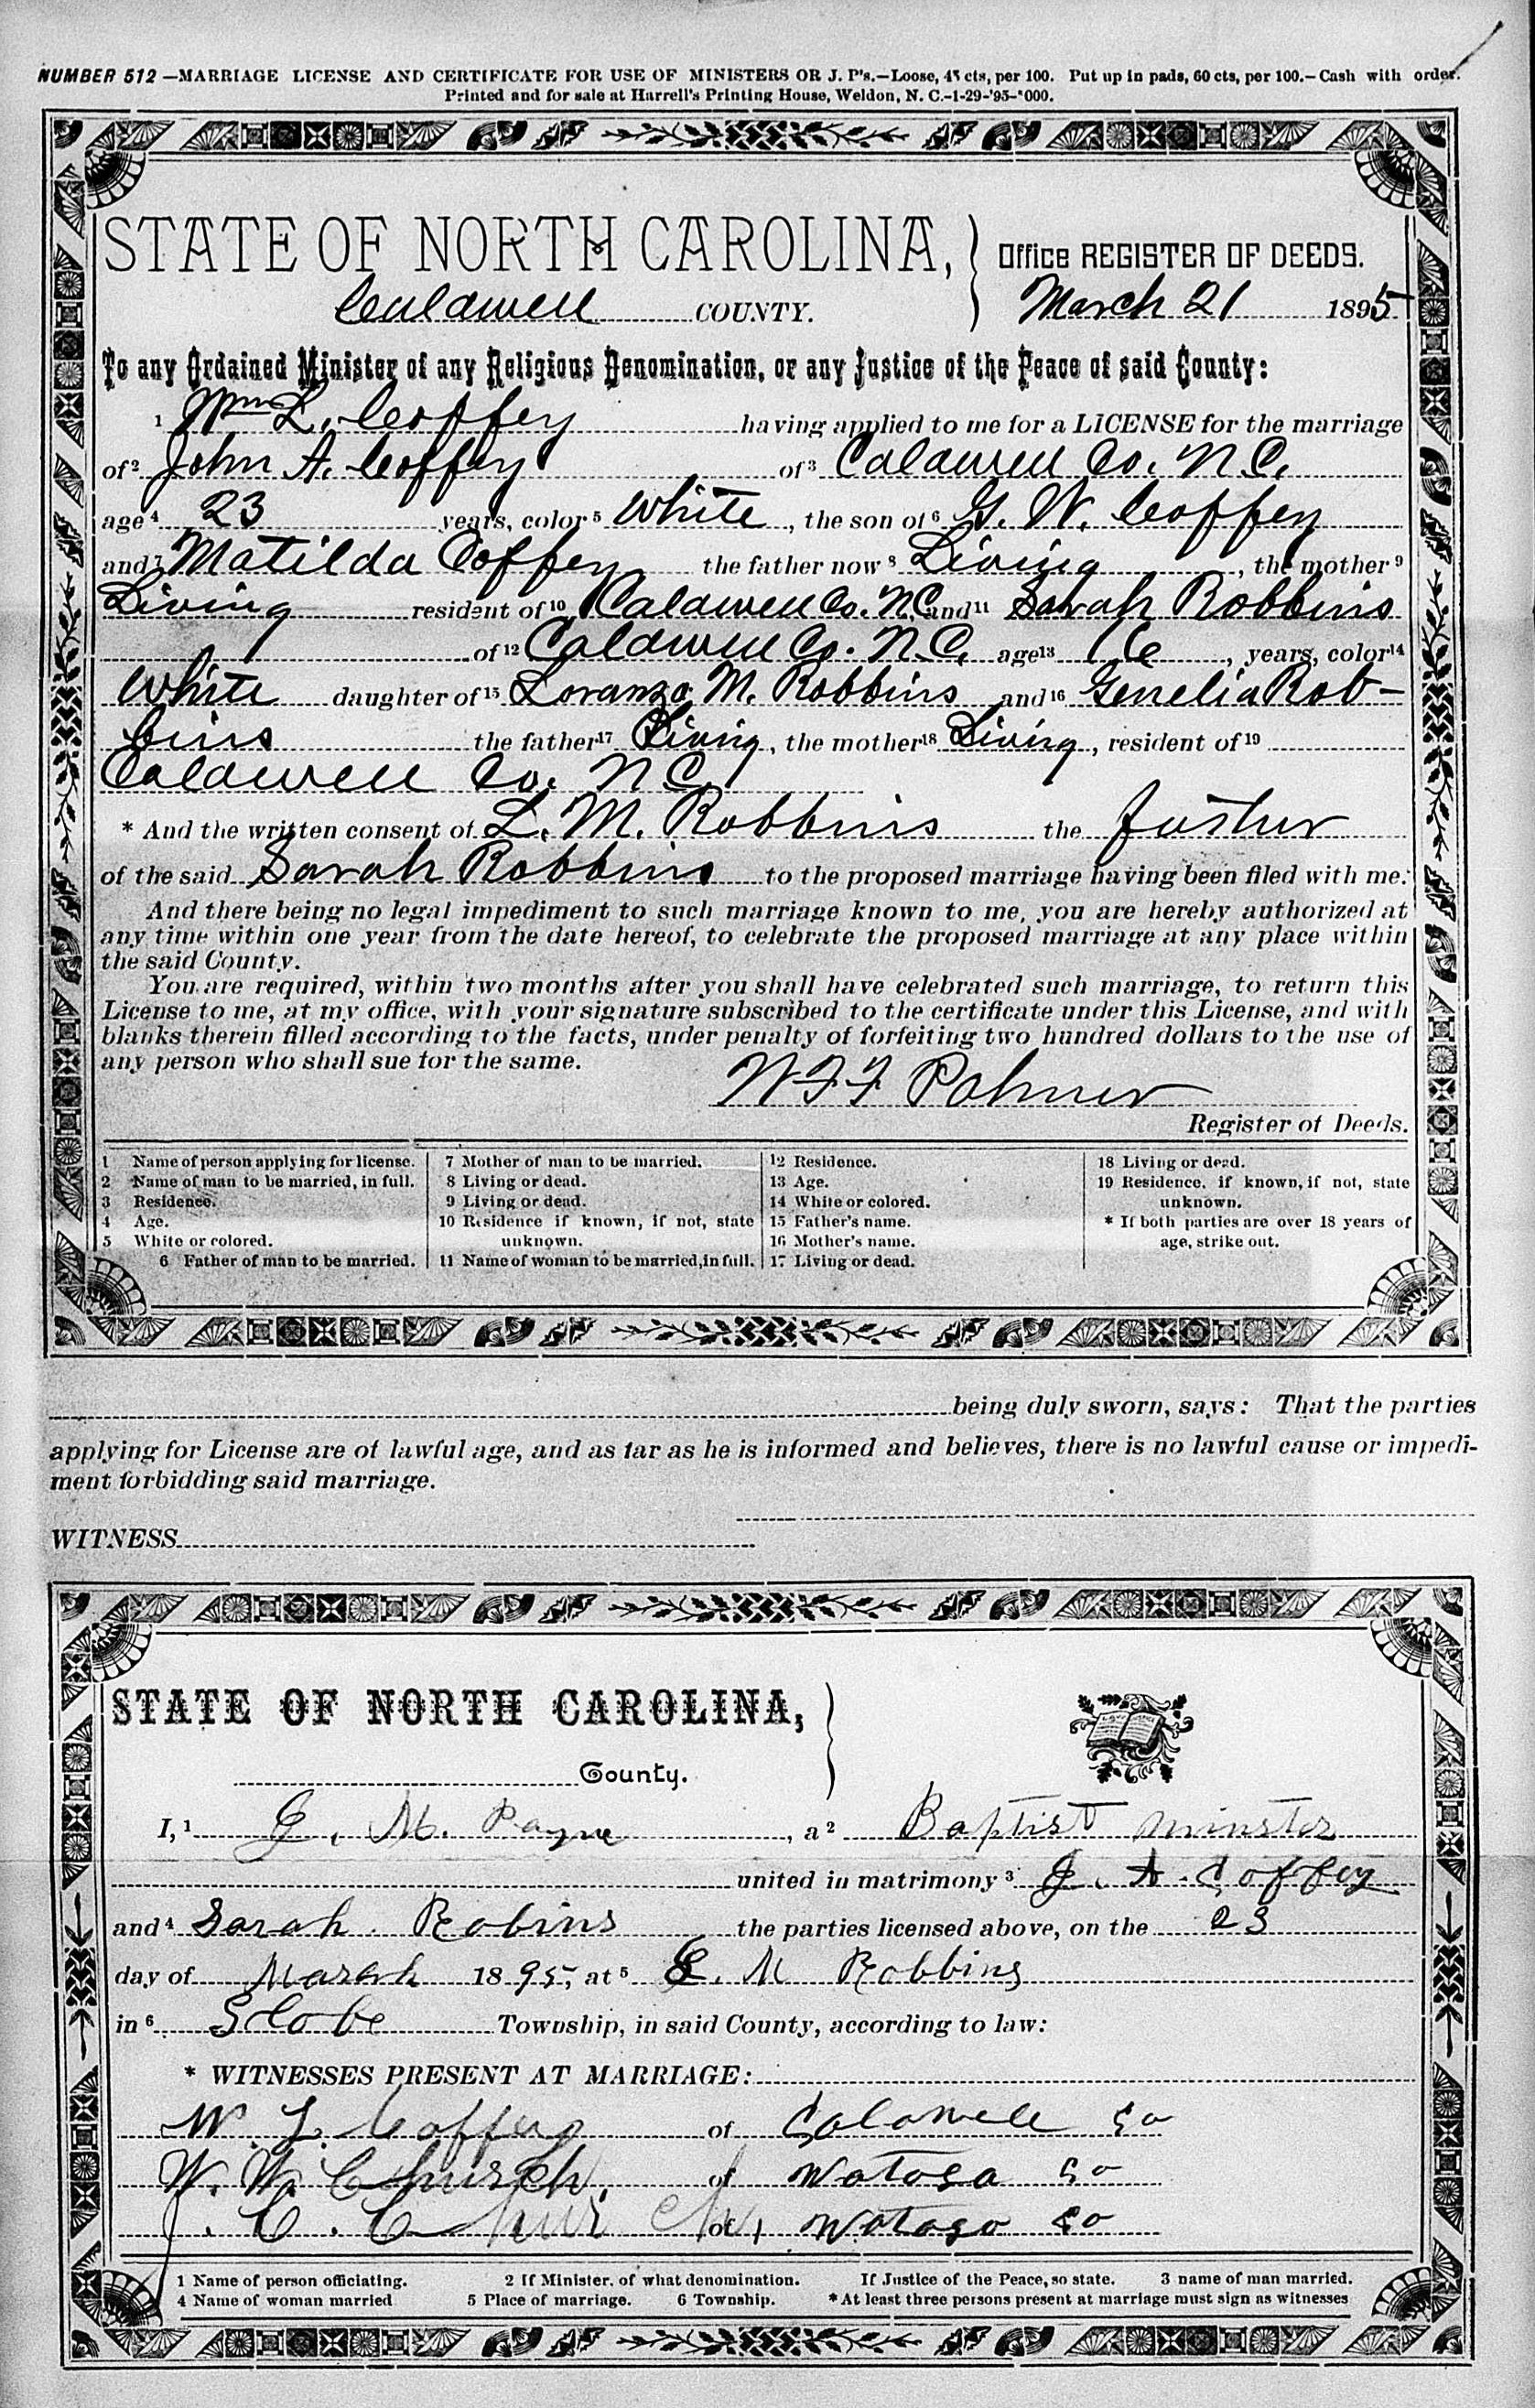 NUMBER 512 —MARRIAGE LICENSE AND CERTIFICATE FOR USE OF MINISTERS OR J. P's.—Loose, 45 cts, per 100. Put up in pads, 60 cts, per 100.—Cash with order.
Printed and for sale at Harrell's Printing House, Weldon, N. C.-1-29-'95-
STATE OF NORTH CAROLINA, Office REGISTER OF DEEDS.
Caldwell COUNTY. March 21 1895
To any Ordained Minister of any Religious Denomination, or any Justice of the Peace of said County:
1 Wm L. Coffey having applied to me for a LICENSE for the marriage
of 2 John A. Coffey of 3 Caldwell Co. N.C.
age 4 23 years, color 5 White, the son of 6 G. W. Coffey
and 7 Matilda Coffey the father now 8 Living, the mother 9
Living resident of 10 Caldwell Co. N.C. and 11 Sarah Robbins
of 12 Caldwell Co. N.C. age 13 16, years, color 14
White daughter of 15 Loranzo M. Robbins and 16 Genelia Rob-
bins the father 17 Living, the mother 18 Living, resident of 19
Caldwell Co. N.C.
* And the written consent of L. M. Robbins the father
of the said Sarah Robbins to the proposed marriage having been filed with me:
And there being no legal impediment to such marriage known to me, you are hereby authorized at
any time within one year from the date hereof, to celebrate the proposed marriage at any place within
the said County.
You are required, within two months after you shall have celebrated such marriage, to return this
License to me, at my office, with your signature subscribed to the certificate under this License, and with
blanks therein filled according to the facts, under penalty of forfeiting two hundred dollars to the use of
any person who shall sue for the same.
Palmer
Register of Deeds.
1 Name of person applying for license.
2 Name of man to be married, in full.
3 Residence.
4 Age.
5 White or colored.
6 Father of man to be married.
7 Mother of man to be married.
8 Living or dead.
9 Living or dead.
10 Residence if known, if not, state
unknown.
11 Name of woman to be married, in full.
12 Residence.
13 Age.
14 White or colored.
15 Father's name.
16 Mother's name.
17 Living or dead.
18 Living or dead.
19 Residence, if known, if not, state
unknown.
* If both parties are over 18 years of
age, strike out.
being duly sworn, says: That the parties
applying for License are of lawful age, and as far as he is informed and believes, there is no lawful cause or impedi-
ment forbidding said marriage.
WITNESS
STATE OF NORTH CAROLINA,
County.
I, 1 J. M. Payne, a 2 Baptist minster
united in matrimony 3 J. A. Coffey
and 4 Sarah. Robins the parties licensed above, on the 23
day of March 1895, at 5 L. M Robbins
in 6 Globe Township, in said County, according to law:
* WITNESSES PRESENT AT MARRIAGE:
W. L. Coffey of Caldwell Co
W. W. Church, of Watoga Co
J. C. Church, of Watoga Co
1 Name of person officiating. 2 If Minister, of what denomination. If Justice of the Peace, so state. 3 name of man married.
4 Name of woman married 5 Place of marriage. 6 Township. * At least three persons present at marriage must sign as witnesses